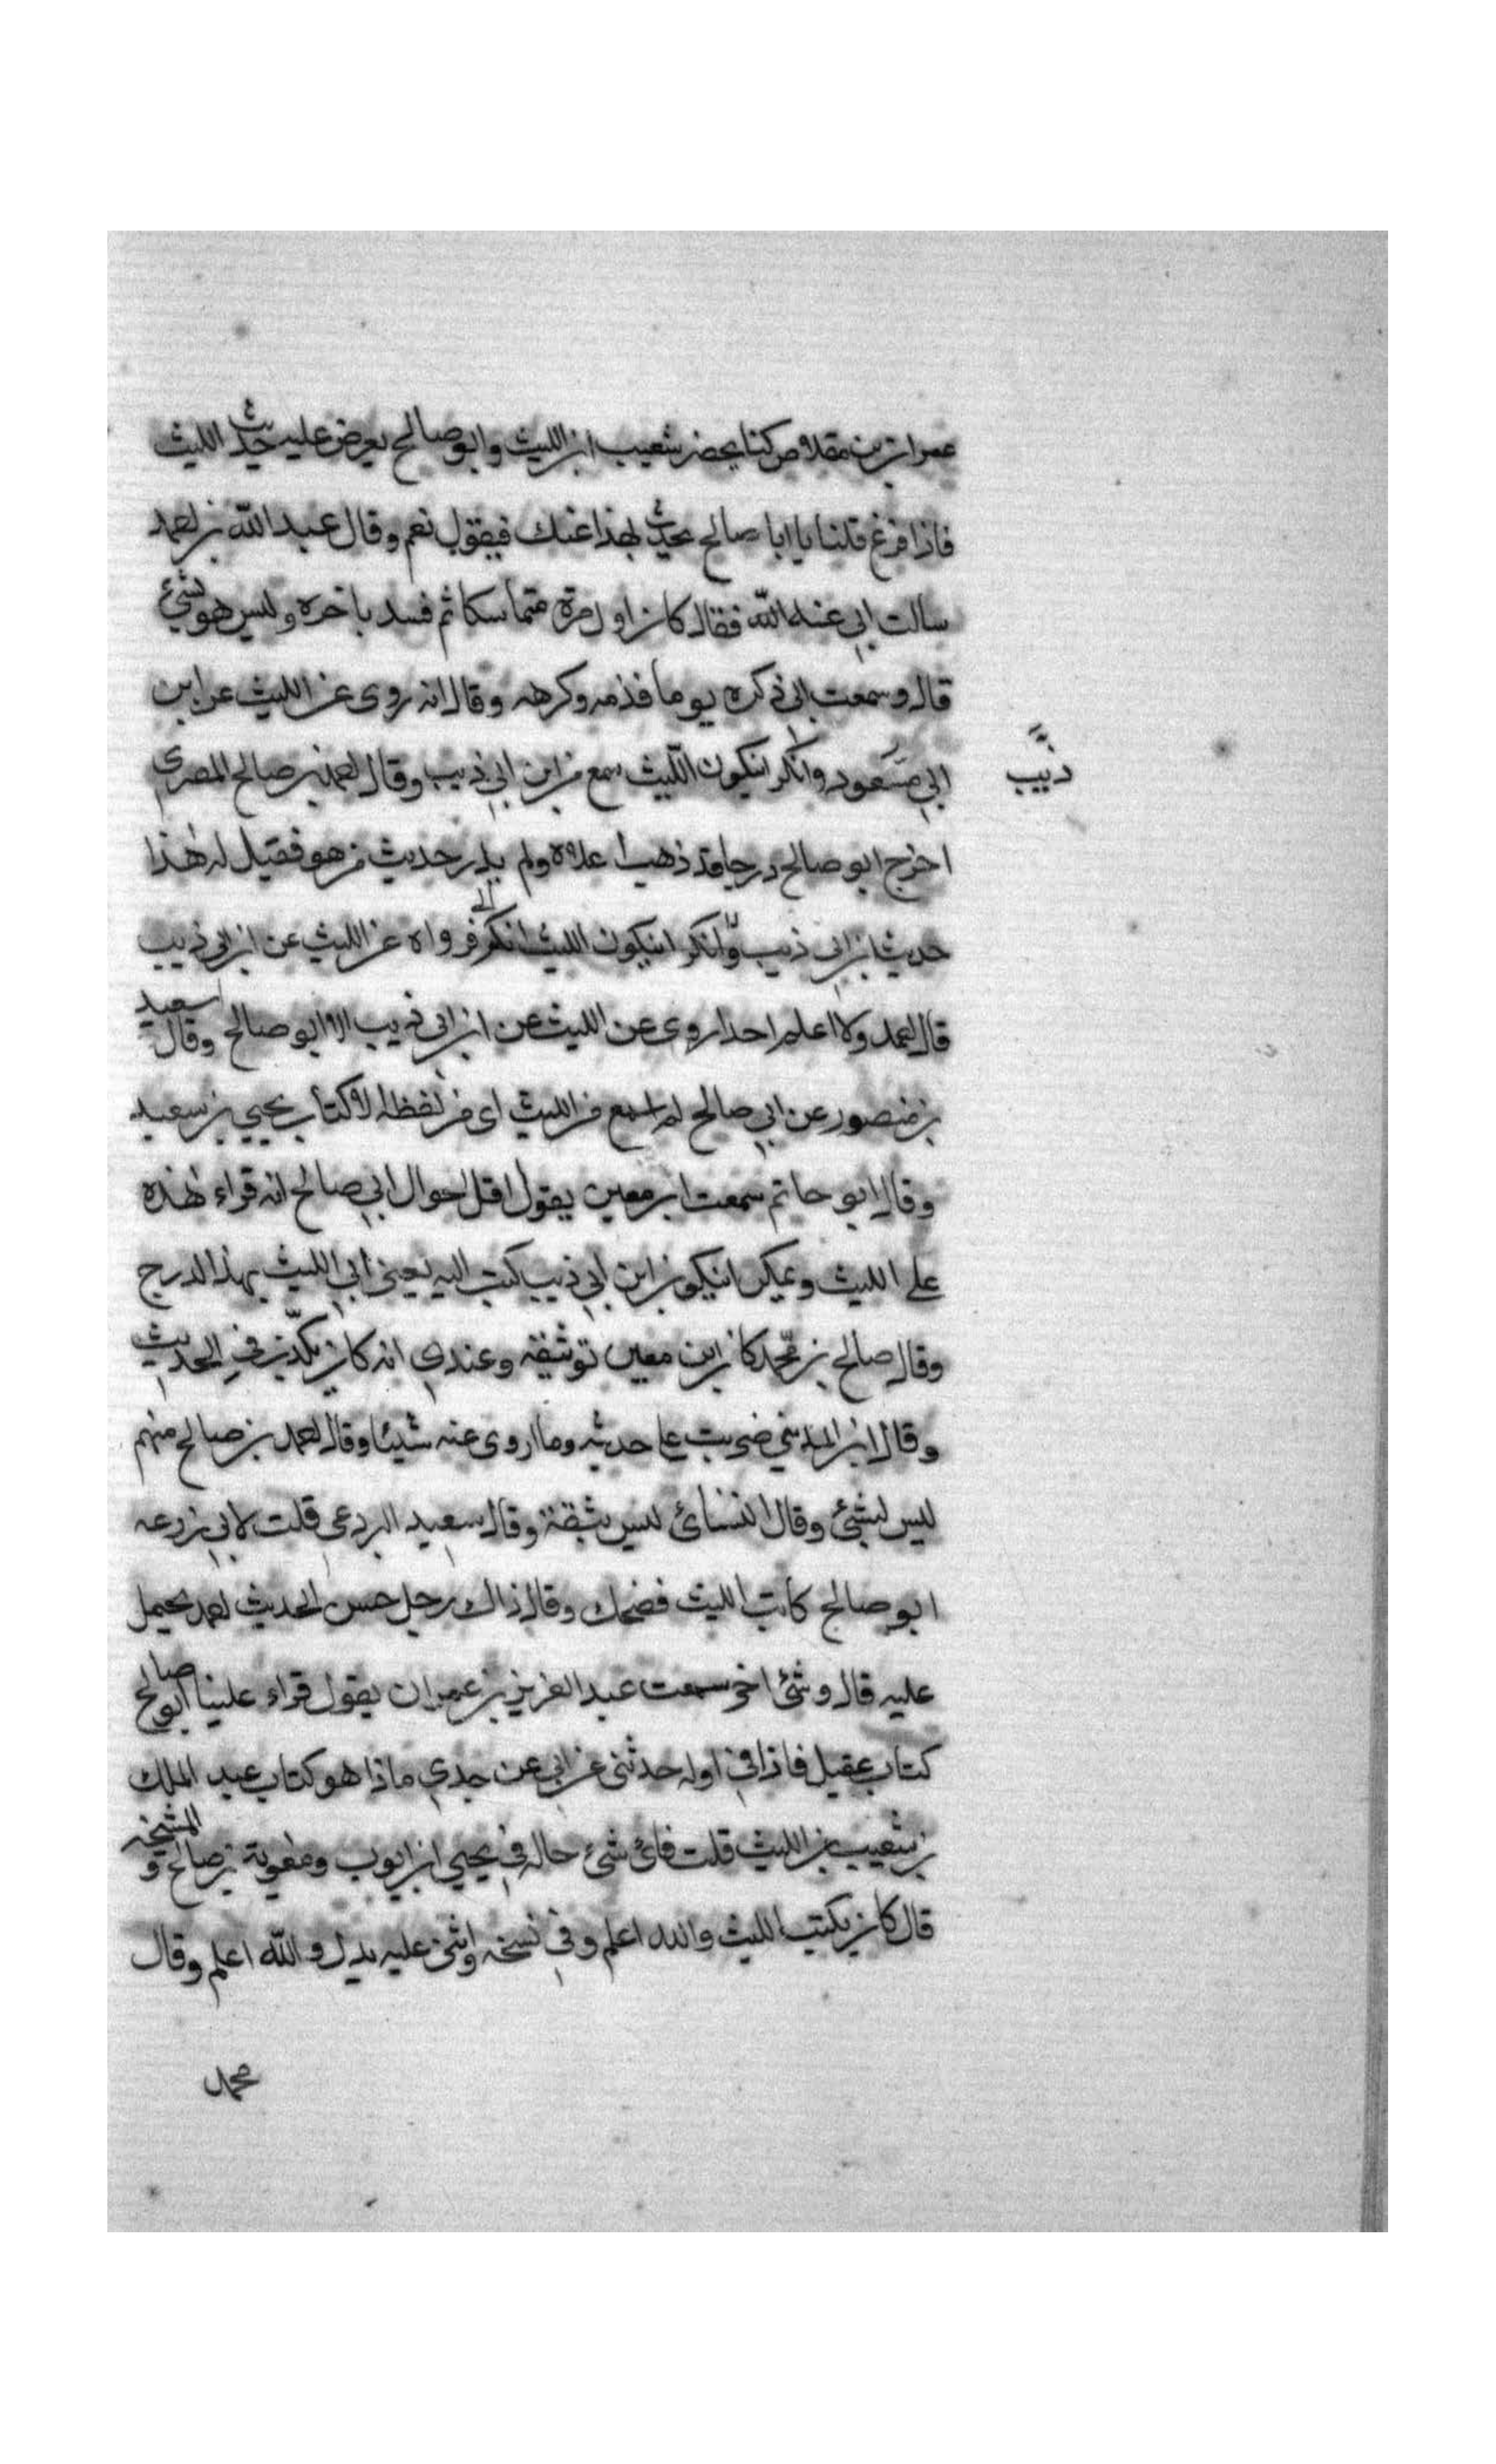 عمران بن مقلاص كنا بحضر شعيب ابن الليث وابو صالح يعرض عليه حديث الليث
فاذا فرغ قلنا يا ابا صالح نحدث بهذا عنك فيقول نعم وقال عبد الله بن احمد
سالت ابي عنه الله فقال كان اول مرة متماسكا ثم فسد باخره وليس هو بشئ
قال وسمعت ابي ذكره يوما فذمه وكرهه وقال انه روى عن الليث عن ابن
ابي مسعود وانكر انيكون الليث سمع من ابن ابي ذيب وقال احمد بن صالح المصري
ذيب
اخرج ابو صالح درجا قد ذهب اعلاه ولم يدر حديث من هو فقيل له هٰذا
حديث ابن ابي ذيب وانكر انيكون الليث انكر فرواه عن الليث عن ابن ابي ذيب
قال احمد ولا اعلم احدا روى عن الليث عن ابن ابي ذيب الا ابو صالح وقال سعيد
بن منصور عن ابي صالح لم اسمع من الليث اى من لفظه الا كتاب يحيى بن سعيد
وقال ابو حاتم سمعت ابن معين يقول اقل احوال ابي صالح انه قراء هٰذه
على الليث ويمكن انيكون ابن ابي ذيب كتب اليه يعنى ابي الليث بهذا الدرج
وقال صالح بن محمد كان ابن معين توثقه وعندي انه كان يكذب في الحديث
وقال ابن المديني ضربت على حديثه وما اروى عنه شيئا وقال احمد بن صالح متهم
ليس بشئ وقال النسائ ليس بثقة وقال سعيد البردعى قلت لابي زرعه
ابو صالح كاتب الليث فضحك وقال ذاك رجل حسن الحديث احمد يحيمل
عليه قال وشئ اخر سمعت عبد العزيز بن عمران يقول قراء علينا ابو صالح
كتاب عقيل فاذا في اوله حدثنى عن ابي عن جدي ماذا هو كتاب عبد الملك
بن شعيب بن الليث قلت فائ شئ حاله في يحيى ابن ايوب ومعوية بن صالح و المشيخه
قال كان يكتب لليث والله اعلم وفي نسخه واثنى عليه بدل والله اعلم وقال
محمد